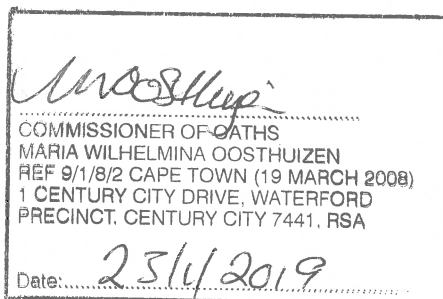 COMMISSIONER OF OATHS
MARIA WILHELMINA OOSTHUIZEN
REF 9/1/8/2 CAPE TOWN (19 MARCH 2008)
1 CENTURY CITY DRIVE, WATERFORD
PRECINCT, CENTURY CITY 7441, RSA
Date: 23/4/2019